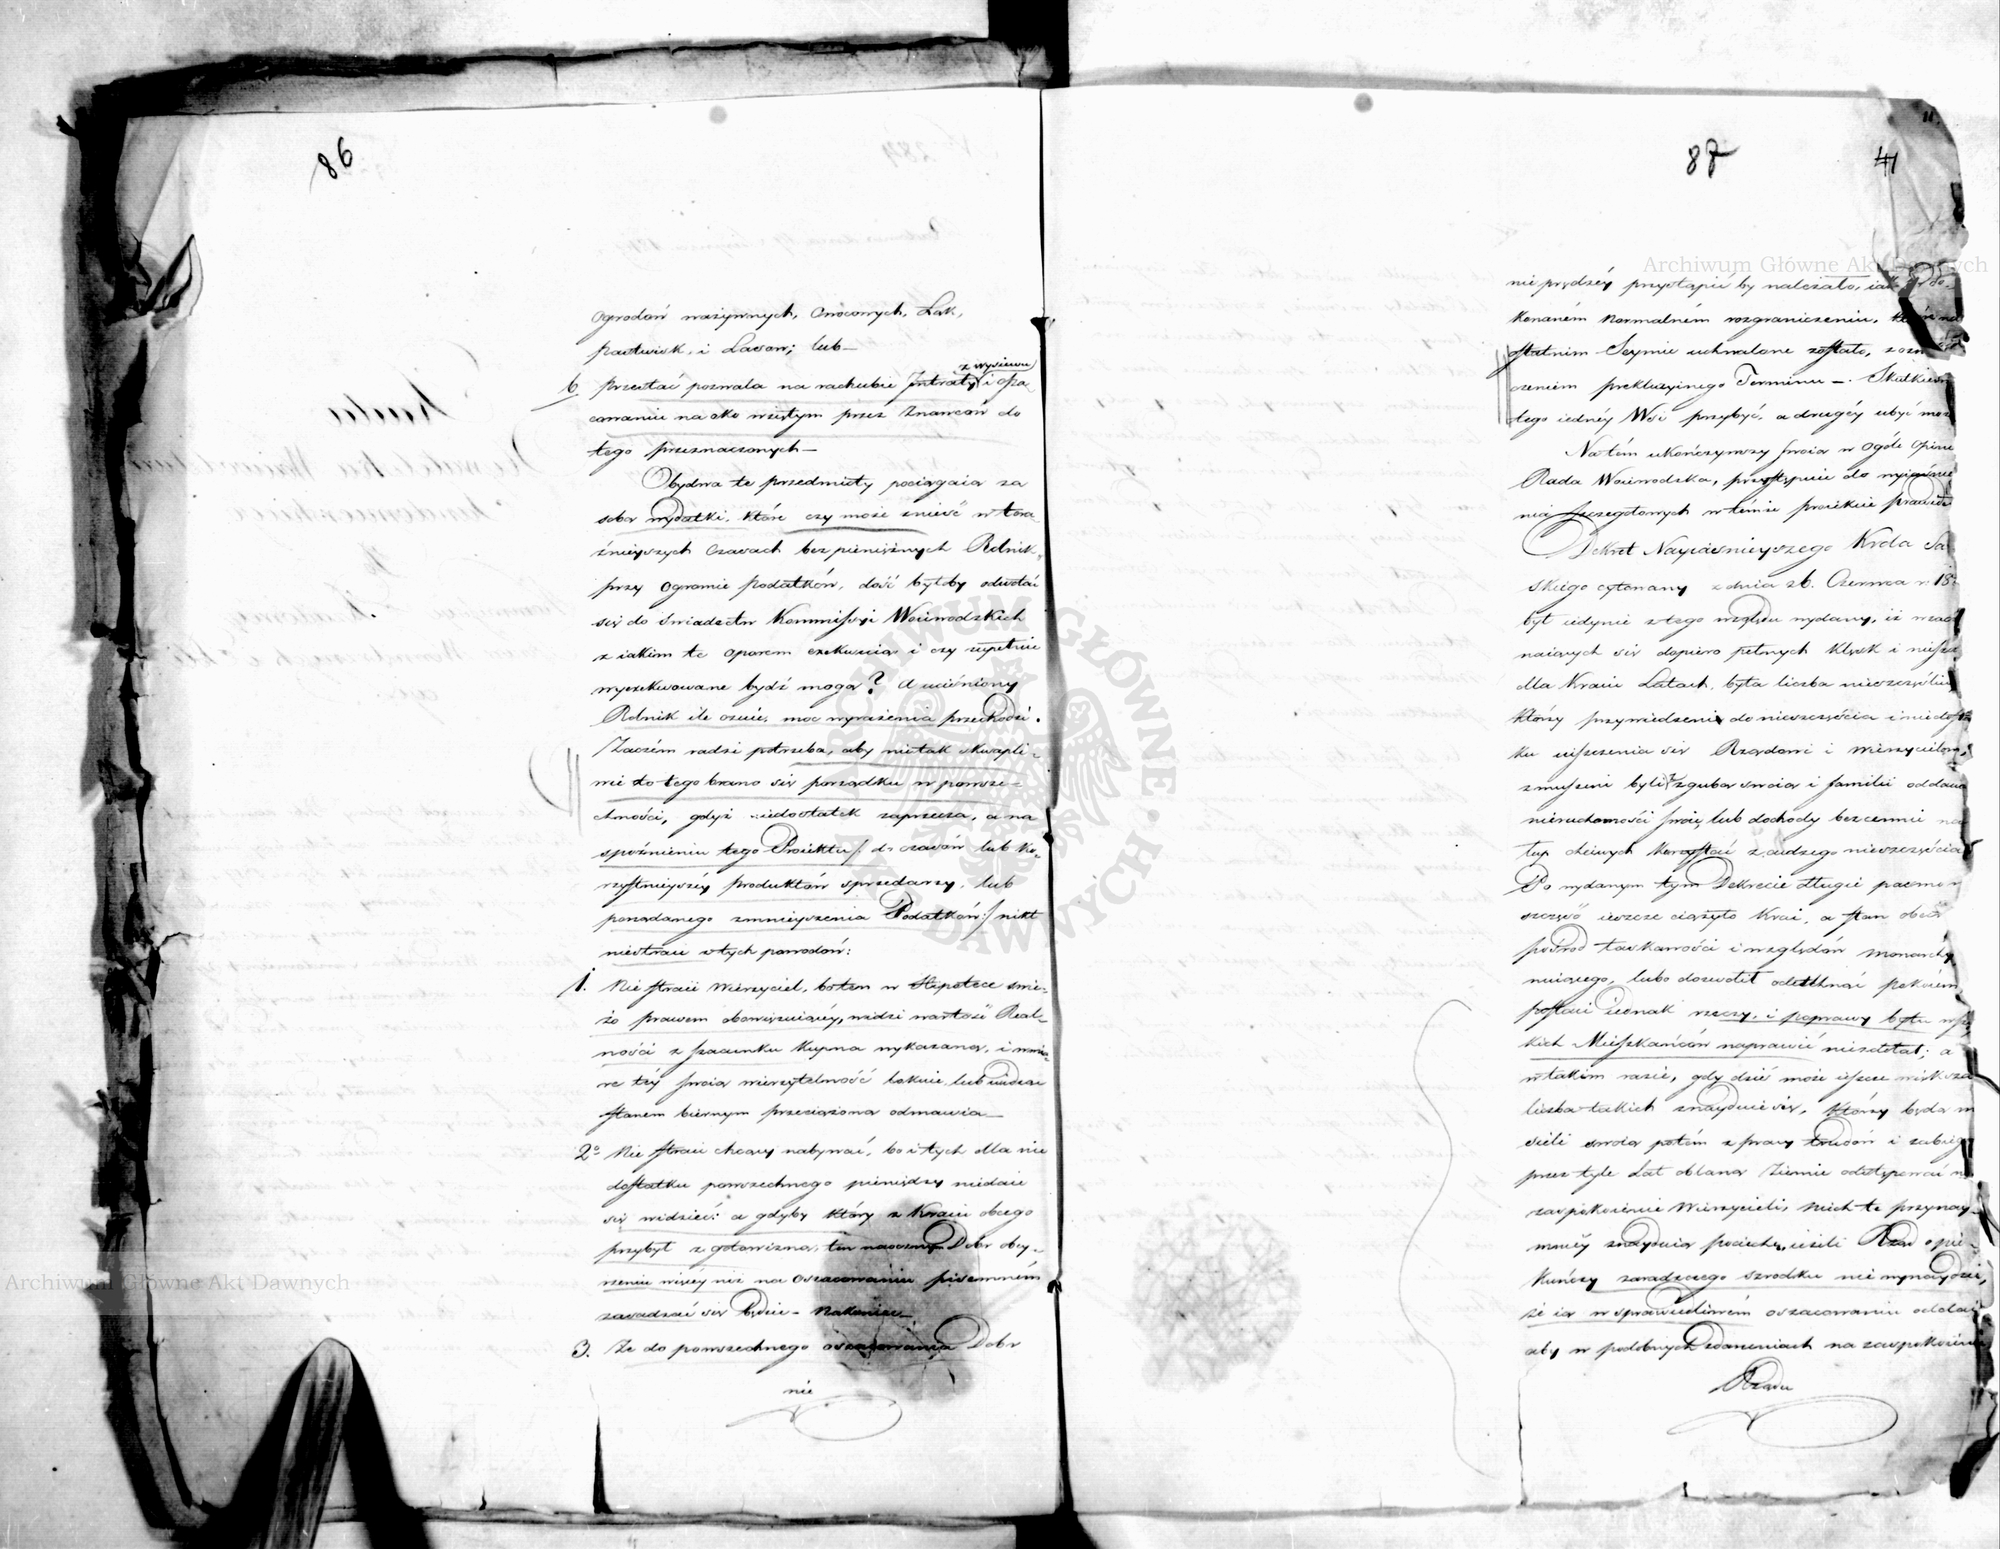 86
ogrodów warzywnych, owocowych, Łąk,
pastwisk, i Lasów; lub
b przestać pozwala na rachubie Intraty z wysiewu i opa
cowaniu na oko wziętym przez Znawców do
tego przeznaczonych —
Obydwa te przedmioty pociągaią za
sobą wydatki, które czy może znieść w tera
źnieyszych czasach bezpieniężnych Rolnik,
przy ogromie podatków, dość byłoby odwołać
się do świadectw Kommissyi Woiewodzkich
z iakim te oporem exekucyią i czy zupełnie
wyexekwowane bydź mogą? A uciśniony
Rolnik ile czuie, moc wyrażenia przechodzi.
Zaczém radzi potrzeba, aby nietak skwapli-
wie do tego brano się porządku w powsze-
chności, gdyż niedostatek zaprzecza, a na
spóźnieniu tego Proiektu /: do czasów lub ko-
rzystnieyszéy produktów sprzedaży, lub
pożądanego zmnieyszenia Podatków :/ nikt
niestraci z tych powodów:
1. Nie straci Wierzyciel, bo ten w Hipotece świe-
żo prawem obowięzuiącéy, widzi wartość Real-
ności z szacunku kupna wykazaną, i w mia-
rę téy swoią wierzytelność lokuie, lub widząc
stanem biernym przeciążoną odmawia —
2o Nie straci chcący nabywać, bo i tych dla nie
dostatku powszechnego pieniędzy niedaie
się widzieć: a gdyby który z Kraiu obcego
przybył z gotowizną, ten naocznym Dobr obey-
rzeniu więcéy niż na oszacowaniu pisemném
zasadzać się będzie — Nakoniec
3. Że do powszechnego oszacowania Dobr
nie
87
41
nie prędzéy przystąpić by należało, iak po do-
konaném normalném rozgraniczeniu, które na
ostatnim Seymie uchwalone zostało, z ozna
czeniem prekluzyinego Terminu —. Skutkiem
tego iednéy Wsi przybyć, a drugéy ubyć może
Na tém ukończywszy swoią w ogóle opinią
Rada Woiewodzka, przystępuie do wyiaśnie
nia szczegółowych w témże proiekcie prawideł
Dekret Nayiaśnieyszego Króla Sa
skiego cytowany z dnia 26. Czerwca r. 18
był iedynie z tego względu wydany, iż w zacz
naiących się dopiero pełnych klęsk i niszcz
dla Kraiu Latach, była liczba nieszczęśliw
którzy przywiedzeni do nieszczęścia i niedosta
ku uiszczenia się Rządowi i wierzycielom,
zmuszeni byli z zgubą swoią i familii oddawać
nieruchomości swoie, lub dochody bezcennie na
łup chciwych korzystać z cudzego nieszczęścia
Po wydanym tym Dekrecie długie pasmo n
szczęść ieszcze ciążyło Kray, a stan obec
pośrod łaskawości i względów monarchy
nuiącego, lubo dozwolił odetchnąć pokoiem
postaci iednak rzeczy, i poprawy bytu wszy
kich Mieszkańców naprawić niezdołał; a
w takim razie, gdy dziś może ieszcze większa
liczba takich znayduie się, którzy będą m
sieli swoią potém z pracy trudów i zabieg
przez tyle Lat oblaną Ziemię odstępować na
zaspokoienie Wierzycieli, niech te przynay-
mniéy znaydą pociechę, ieżeli Rząd opie-
kuńczy zaradczego szrodku nie wynaydzie,
że ią w sprawiedliwém oszacowaniu oddaią
aby w podobnych zdarzeniach na zaspokoienie
Rządu
Archiwum Główne Akt Dawnych
Archiwum Główne Akt Dawnych
ARCHIWUM GŁÓWNE AKT DAWNYCH